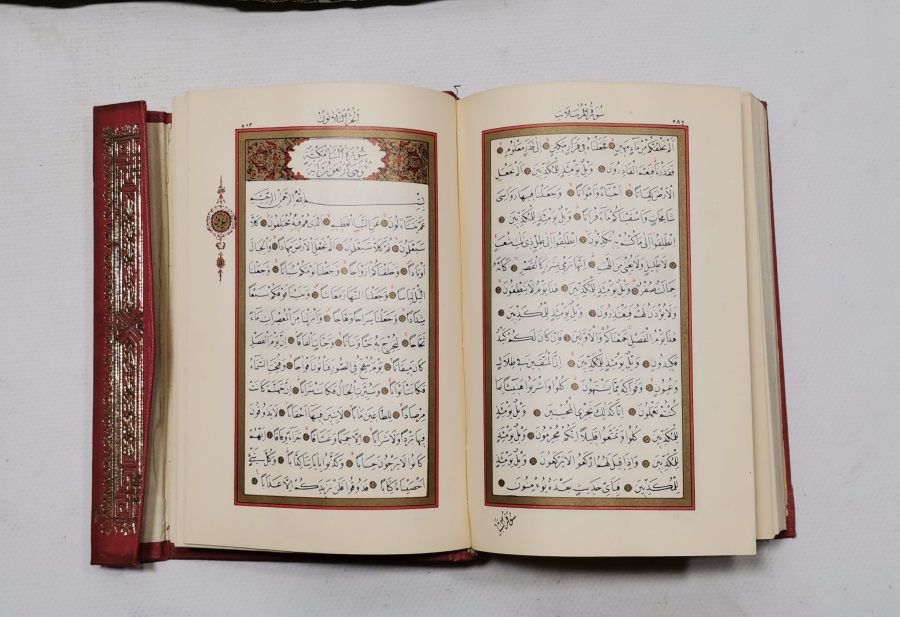 سُورَةُ الْمُرْسَلَاتِ
٥٨٢
اَلَمْ نَخْلُقْكُمْ مِنْ مَاءٍ مَهِينٍ فَجَعَلْنَاهُ فِي قَرَارٍ مَكِينٍ اِلَى قَدَرٍ مَعْلُومٍ
فَقَدَرْنَا فَنِعْمَ الْقَادِرُونَ وَيْلٌ يَوْمَئِذٍ لِلْمُكَذِّبِينَ اَلَمْ نَجْعَلِ
الْاَرْضَ كِفَاتًا اَحْيَاءً وَاَمْوَاتًا وَجَعَلْنَا فِيهَا رَوَاسِيَ
شَامِخَاتٍ وَاَسْقَيْنَاكُمْ مَاءً فُرَاتًا وَيْلٌ يَوْمَئِذٍ لِلْمُكَذِّبِينَ
اِنْطَلِقُوا اِلَى مَا كُنْتُمْ بِهِ تُكَذِّبُونَ اِنْطَلِقُوا اِلَى ظِلٍّ ذِي ثَلٰثِ شُعَبٍ
لَا ظَلِيلٍ وَلَا يُغْنِي مِنَ اللَّهَبِ اِنَّهَا تَرْمِي بِشَرَرٍ كَالْقَصْرِ كَاَنَّهُ
جِمَالَتٌ صُفْرٌ وَيْلٌ يَوْمَئِذٍ لِلْمُكَذِّبِينَ هٰذَا يَوْمُ لَا يَنْطِقُونَ
وَلَا يُؤْذَنُ لَهُمْ فَيَعْتَذِرُونَ وَيْلٌ يَوْمَئِذٍ لِلْمُكَذِّبِينَ
هٰذَا يَوْمُ الْفَصْلِ جَمَعْنَاكُمْ وَالْاَوَّلِينَ فَاِنْ كَانَ لَكُمْ كَيْدٌ
فَكِيدُونِ وَيْلٌ يَوْمَئِذٍ لِلْمُكَذِّبِينَ اِنَّ الْمُتَّقِينَ فِي ظِلَالٍ
وَعُيُونٍ وَفَوَاكِهَ مِمَّا يَشْتَهُونَ كُلُوا وَاشْرَبُوا هَنِيئًا بِمَا
كُنْتُمْ تَعْمَلُونَ اِنَّا كَذٰلِكَ نَجْزِي الْمُحْسِنِينَ وَيْلٌ يَوْمَئِذٍ
لِلْمُكَذِّبِينَ كُلُوا وَتَمَتَّعُوا قَلِيلًا اِنَّكُمْ مُجْرِمُونَ وَيْلٌ يَوْمَئِذٍ
لِلْمُكَذِّبِينَ وَاِذَا قِيلَ لَهُمُ ارْكَعُوا لَا يَرْكَعُونَ وَيْلٌ يَوْمَئِذٍ
لِلْمُكَذِّبِينَ فَبِاَيِّ حَدِيثٍ بَعْدَهُ يُؤْمِنُونَ
سُورَةُ النَّبَأِ
اَلْجُزْءُ الثَّلَاثُونَ
٥٨٣
سُورَةُ النَّبَأِ مَكِّيَّةٌ
وَهِيَ اَرْبَعُونَ اٰيَةً
بِسْمِ اللّٰهِ الرَّحْمٰنِ الرَّحِيمِ
عَمَّ يَتَسَاءَلُونَ عَنِ النَّبَأِ الْعَظِيمِ اَلَّذِي هُمْ فِيهِ مُخْتَلِفُونَ كَلَّا
سَيَعْلَمُونَ ثُمَّ كَلَّا سَيَعْلَمُونَ اَلَمْ نَجْعَلِ الْاَرْضَ مِهَادًا وَالْجِبَالَ
اَوْتَادًا وَخَلَقْنَاكُمْ اَزْوَاجًا وَجَعَلْنَا نَوْمَكُمْ سُبَاتًا وَجَعَلْنَا
الَّيْلَ لِبَاسًا وَجَعَلْنَا النَّهَارَ مَعَاشًا وَبَنَيْنَا فَوْقَكُمْ سَبْعًا
شِدَادًا وَجَعَلْنَا سِرَاجًا وَهَّاجًا وَاَنْزَلْنَا مِنَ الْمُعْصِرَاتِ مَاءً
ثَجَّاجًا لِنُخْرِجَ بِهِ حَبًّا وَنَبَاتًا وَجَنَّاتٍ اَلْفَافًا اِنَّ يَوْمَ الْفَصْلِ
كَانَ مِيقَاتًا يَوْمَ يُنْفَخُ فِي الصُّورِ فَتَأْتُونَ اَفْوَاجًا وَفُتِحَتِ السَّمَاءُ
فَكَانَتْ اَبْوَابًا وَسُيِّرَتِ الْجِبَالُ فَكَانَتْ سَرَابًا اِنَّ جَهَنَّمَ كَانَتْ
مِرْصَادًا لِلطَّاغِينَ مَاٰبًا لَابِثِينَ فِيهَا اَحْقَابًا لَا يَذُوقُونَ
فِيهَا بَرْدًا وَلَا شَرَابًا اِلَّا حَمِيمًا وَغَسَّاقًا جَزَاءً وِفَاقًا اِنَّهُمْ
كَانُوا لَا يَرْجُونَ حِسَابًا وَكَذَّبُوا بِاٰيَاتِنَا كِذَّابًا وَكُلَّ شَيْءٍ
اَحْصَيْنَاهُ كِتَابًا فَذُوقُوا فَلَنْ نَزِيدَكُمْ اِلَّا عَذَابًا